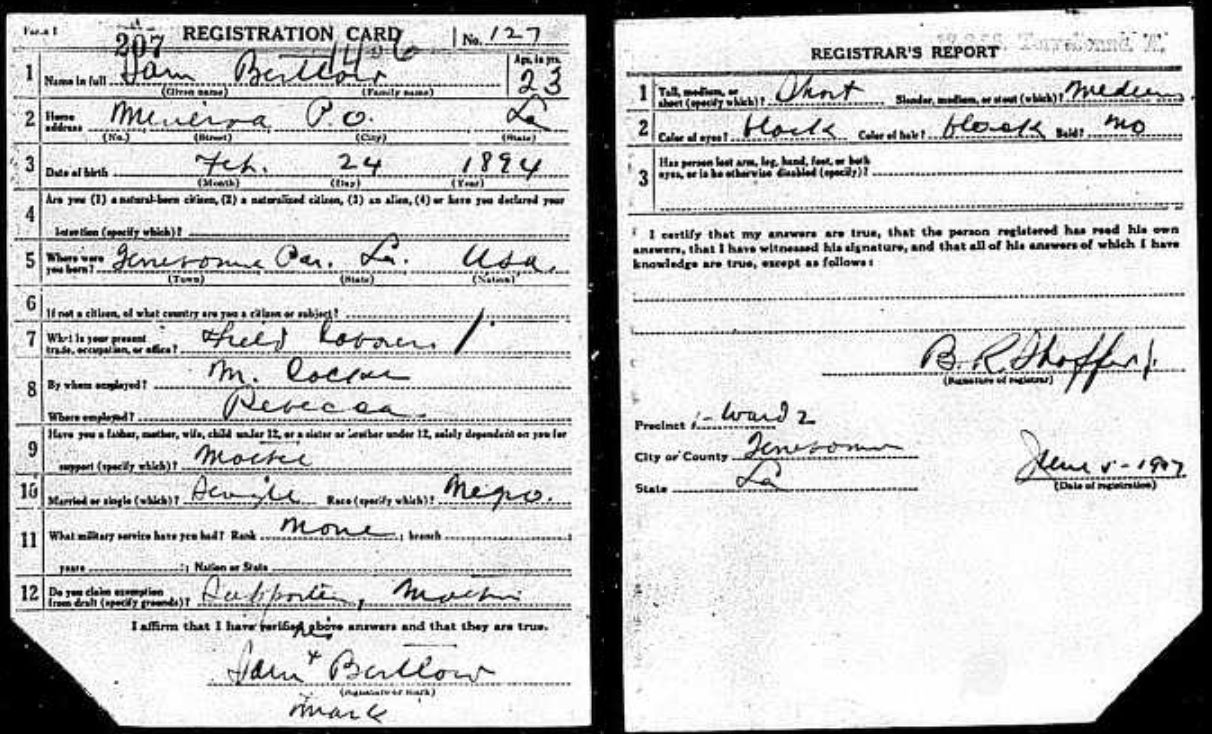 Form 1
207 REGISTRATION CARD No. 127
1486
1 Name in full Sam Bertlow Age, in yrs. 23
(Given name) (Family name)
2 Home address Minerva P.O. La
(No.) (Street) (City) (State)
3 Date of birth Feb. 24 1894
(Month) (Day) (Year)
4 Are you (1) a natural-born citizen, (2) a naturalized citizen, (3) an alien, (4) or have you declared your
intention (specify which)?
5 Where were you born? Terrebonne Par. La. USA.
(Town) (State) (Nation)
6 If not a citizen, of what country are you a citizen or subject?
7 What is your present trade, occupation, or office? Field Laborer
8 By whom employed? M.
Where employed? Rebecca
9 Have you a father, mother, wife, child under 12, or a sister or brother under 12, solely dependent on you for
support (specify which)? Mother
10 Married or single (which)? Single Race (specify which)? Negro.
11 What military service have you had? Rank None ; branch ;
years ; Nation or State
12 Do you claim exemption from draft (specify grounds)? Supporting Mother
I affirm that I have verified above answers and that they are true.
his
Sam + Bertlow
(Signature or mark)
mark
REGISTRAR'S REPORT
1 Tall, medium, or short (specify which)? Short Slender, medium, or stout (which)? Medium
2 Color of eyes? black Color of hair? black Bald? No
3 Has person lost arm, leg, hand, foot, or both eyes, or is he otherwise disabled (specify)?
I certify that my answers are true, that the person registered has read his own
answers, that I have witnessed his signature, and that all of his answers of which I have
knowledge are true, except as follows:
B. R. Shaffer Jr.
(Signature of registrar)
Precinct 1 - Ward 2
City or County Terrebonne
State La
June 5 - 1917
(Date of registration)